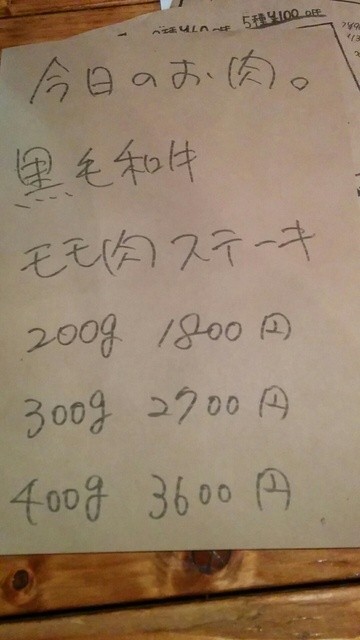 5種¥100 OFF
今日のお肉。
黒毛和牛
モモ肉ステーキ
200g 1800円
300g 2700円
400g 3600円